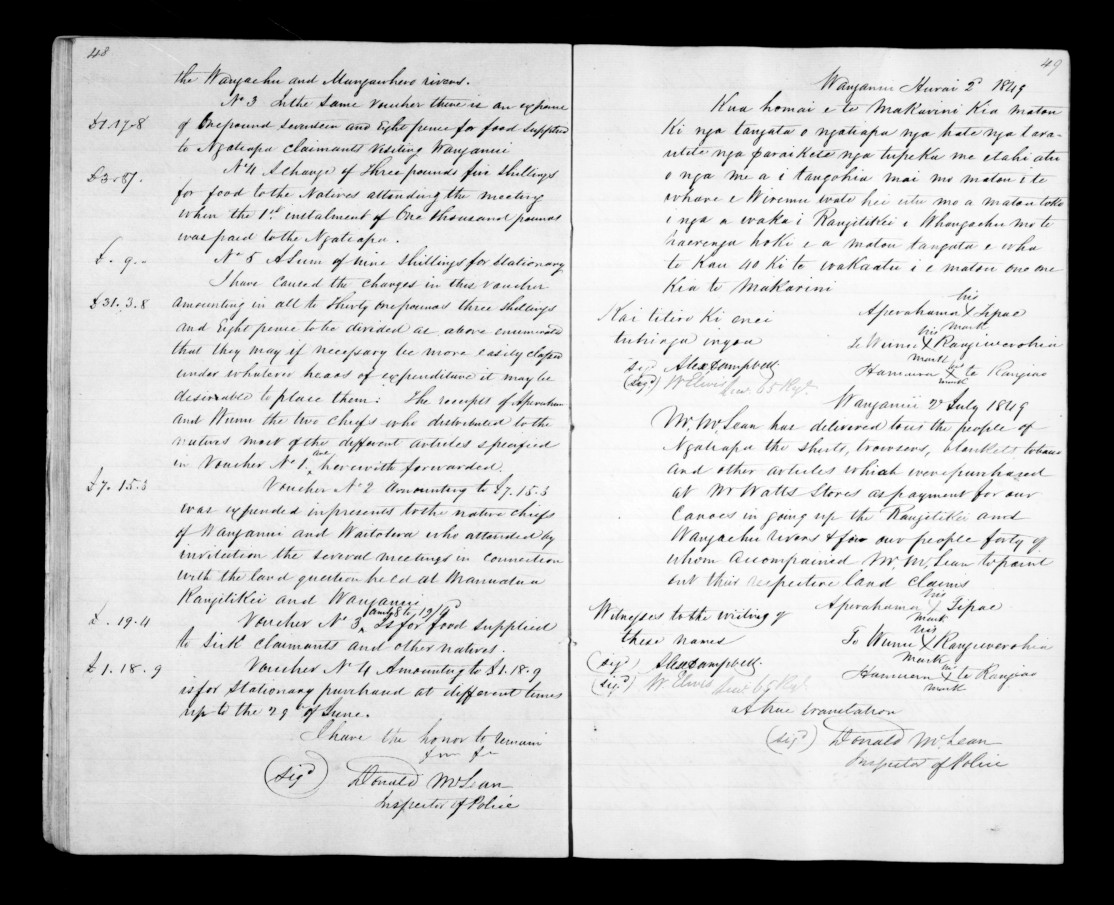 48
the Wangaehu and Mangawhero rivers.
No 3 In the same voucher there is an expense
£1.17.8 of One pound seventeen and Eight pence for food supplied
to Ngatiapa claimants visiting Wanganui
£3.5. No 4 A charge of Three pounds five shillings
for food to the Natives attending the meeting
when the 1st instalment of One thousand pounds
was paid to the Ngatiapa.
£. 9.- No 5 A Sum of nine shillings for Stationary
I have caused the charges in this voucher
£31.3.8 amounting in all to Thirty one pounds three shillings
and Eight pence to be divided as above enumerated
that they may if necessary be more easily classed
under whatever heads of expenditure it may be
desirable to place them: The receipts of Aperahama
and Wunu the two chiefs who distributed to the
natives most of the different articles specified
in Voucher No 1. are herewith forwarded.
£7.15.3 Voucher No 2 Amounting to £7.15.3
was expended in presents to the native chiefs
of Wanganui and Waitotara who attended by
invitation the several meetings in connection
with the land question held at Manawatua
Rangitikei and Wanganui
£. 19.4 Voucher No 3 Is for food supplied
to Sick claimants and other natives.
£1.18.9 Voucher No 4 Amounting to £1.18.9
is for Stationary purchased at different times
up to the 29th of June.
I have the honor to remain
(Sigd) Donald McLean
Inspector of Police
49
Wanganui Hurai 2d 1849
Kua homai e te Makarini kia matou
ki nga tangata o ngatiapa nga hate nga tara-
utete nga paraikete nga tupeka me etahi atu
o nga me a i tangohia mai mo matou i te
whare e Wiremu wati hei utu mo a matou
i nga a waka i Rangitikei i Whangaehu mo te
haerenga hoki e a matou tangata e wha
te kau 40 ki te wakaatu i e matou one one
kia te Makarini
Kai titiro ki enei
tuhinga ingoa
Aperahama his X mark Tipae
Te Wunu his X mark Rangiwerohia
Hamuera his X mark te Rangiao
Sigd Alex Campbell
(Sigd) W Elwis 65 Rgt.
Wanganui 2d July 1849
Mr. McLean has delivered to us the people of
Ngatiapa the shirts, trowsers, blankets tobacco
and other articles which were purchased
at Mr Watts Stores as payment for our
Canoes in going up the Rangitikei and
Wangaehu rivers & for our people forty of
whom accompanied Mr. McLean to point
out their respective land claims
Witnesses to the writing of
these names
Aperahama his X mark Tipae
Te Wunu his X mark Rangiwerohia
Hamuera his X mark te Rangiao
(Sigd) Alex Campbell.
(Sigd) W. Elwis 65 Rgt.
a true translation
(Sigd) Donald McLean
Inspector of Police